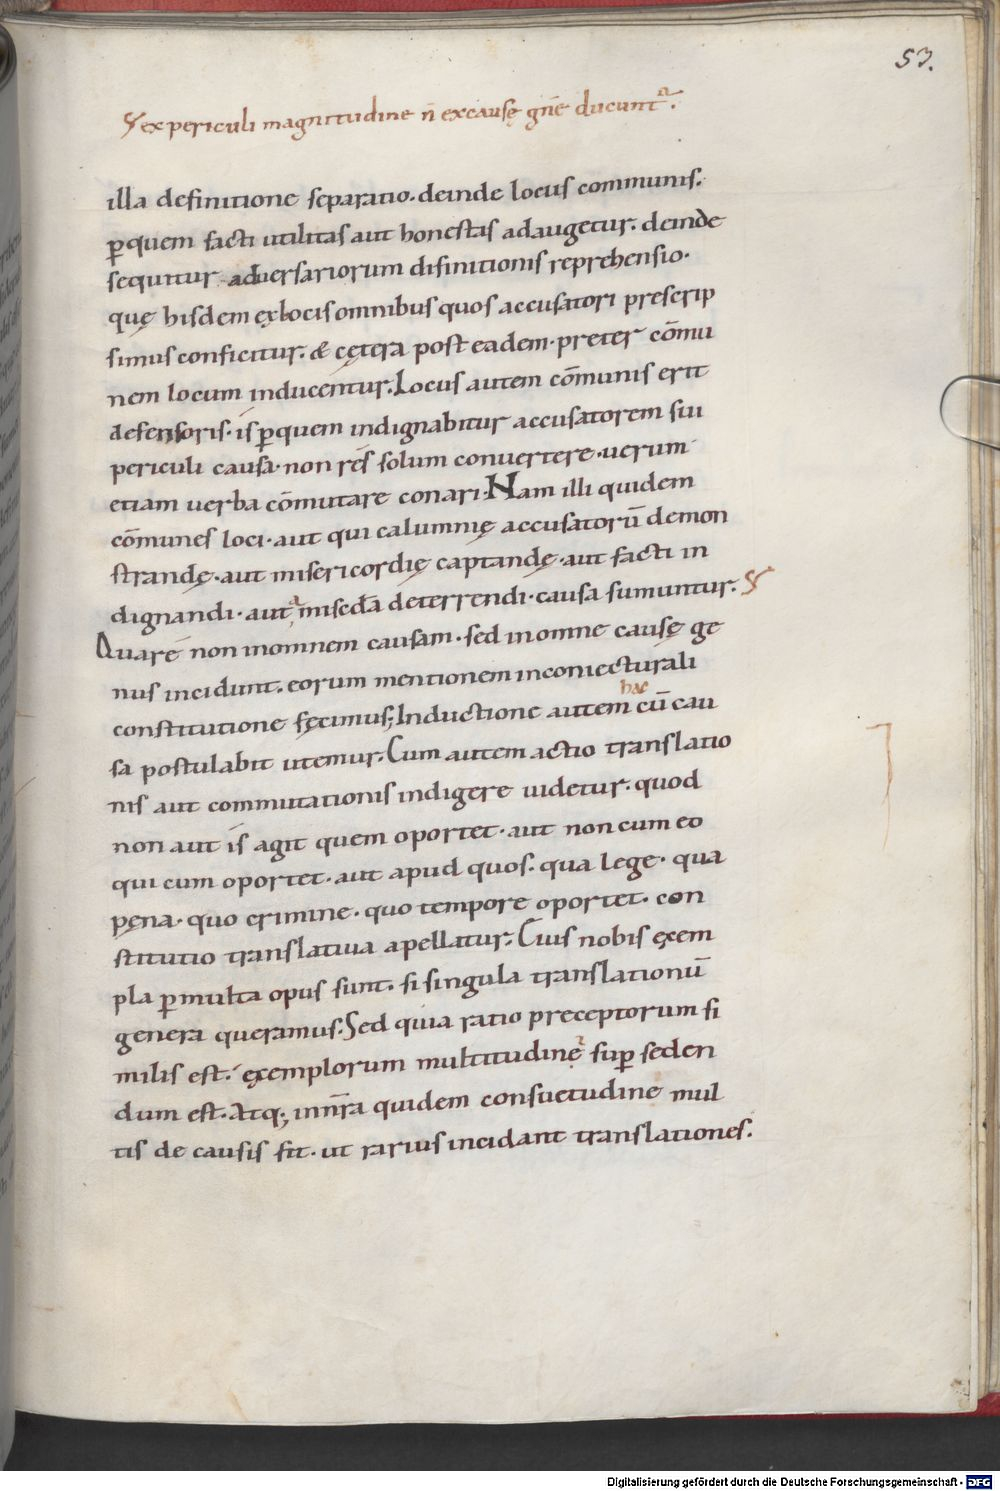 53.
ex periculi magnitudine n̄ ex causę gn̄e ducunt.
illa definitione separatio. deinde locus communis.
ꝑ quem facti utilitas aut honestas adaugetur. deinde
sequitur aduersariorum difinitionis reprehensio.
quę hisdem ex locis omnibus quos accusatori prescrip
simus conficitur. & cętera post eadem. preter cōmu
nem locum inducentur. Locus autem cōmunis erit
defensoris. is ꝑ quem indignabitur accusatorem sui
periculi causa. non res solum conuertere. uerum
etiam uerba cōmutare conari. Nam illi quidem
cōmunes loci. aut qui calumnię accusatorū demon
strandę. aut misericordię captandę. aut facti in
dignandi. aut a miscd̄a deterrendi. causa sumuntur.
Quare non in omnem causam. sed in omne causę ge
nus incidunt. eorum mentionem in coniecturali
constitutione fęcimus; Inductione autem cū cau
hac
sa postulabit utemur. Cum autem actio translatio
nis aut commutationis indigere uidetur. quod
non aut is agit quem oportet. aut non cum eo
qui cum oportet. aut apud quos. qua lege. qua
pęna. quo crimine. quo tempore oportet. con
stitutio translatiua apellatur. Cuius nobis exem
pla ꝑmulta opus sunt. si singula translationū
genera queramus. Sed quia ratio preceptorum si
milis est. exemplorum multitudinę suꝑseden
dum est. Atq; in nr̄a quidem consuetudine mul
tis de causis fit. ut rarius incidant translationes.
Digitalisierung gefördert durch die Deutsche Forschungsgemeinschaft - DFG